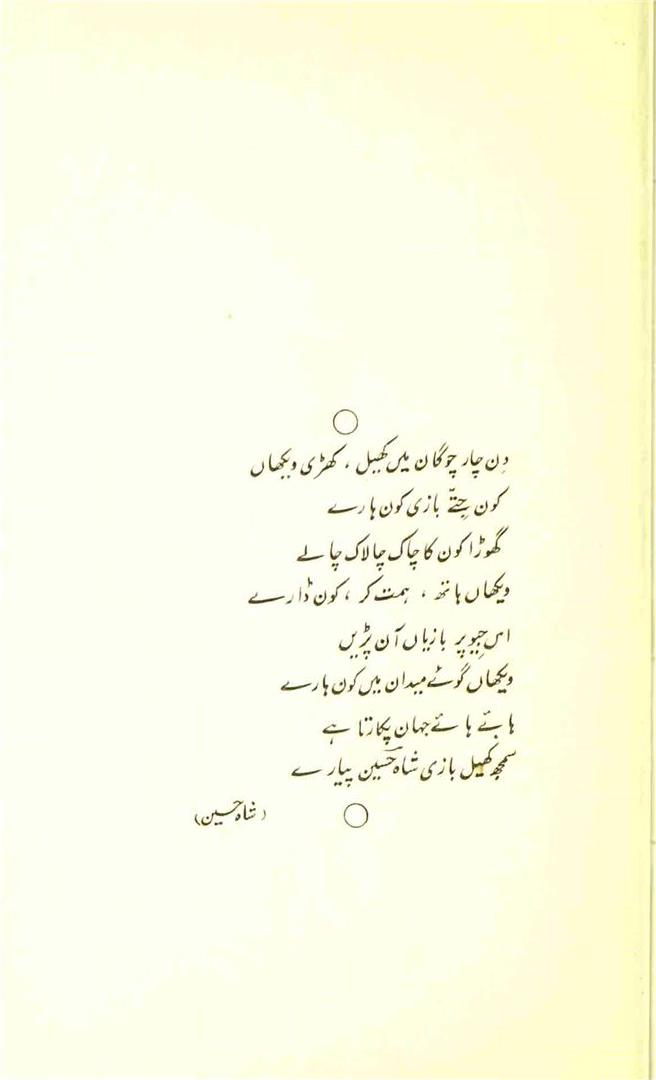 دِن چار چوگان میں کھیل ، کھڑی ویکھاں
کون جِتّے بازی کون ہارے
گھوڑا کون کا چاک چالاک چالے
ویکھاں ہاتھ ، ہمت کر ، کون ڈارے
اس جِیو پر بازیاں آن پڑیں
ویکھاں گوئے میدان میں کون ہارے
ہائے ہائے جہان پکارتا ہے
سمجھ کھیل بازی شاہ حسین پیارے
(شاہ حسین)